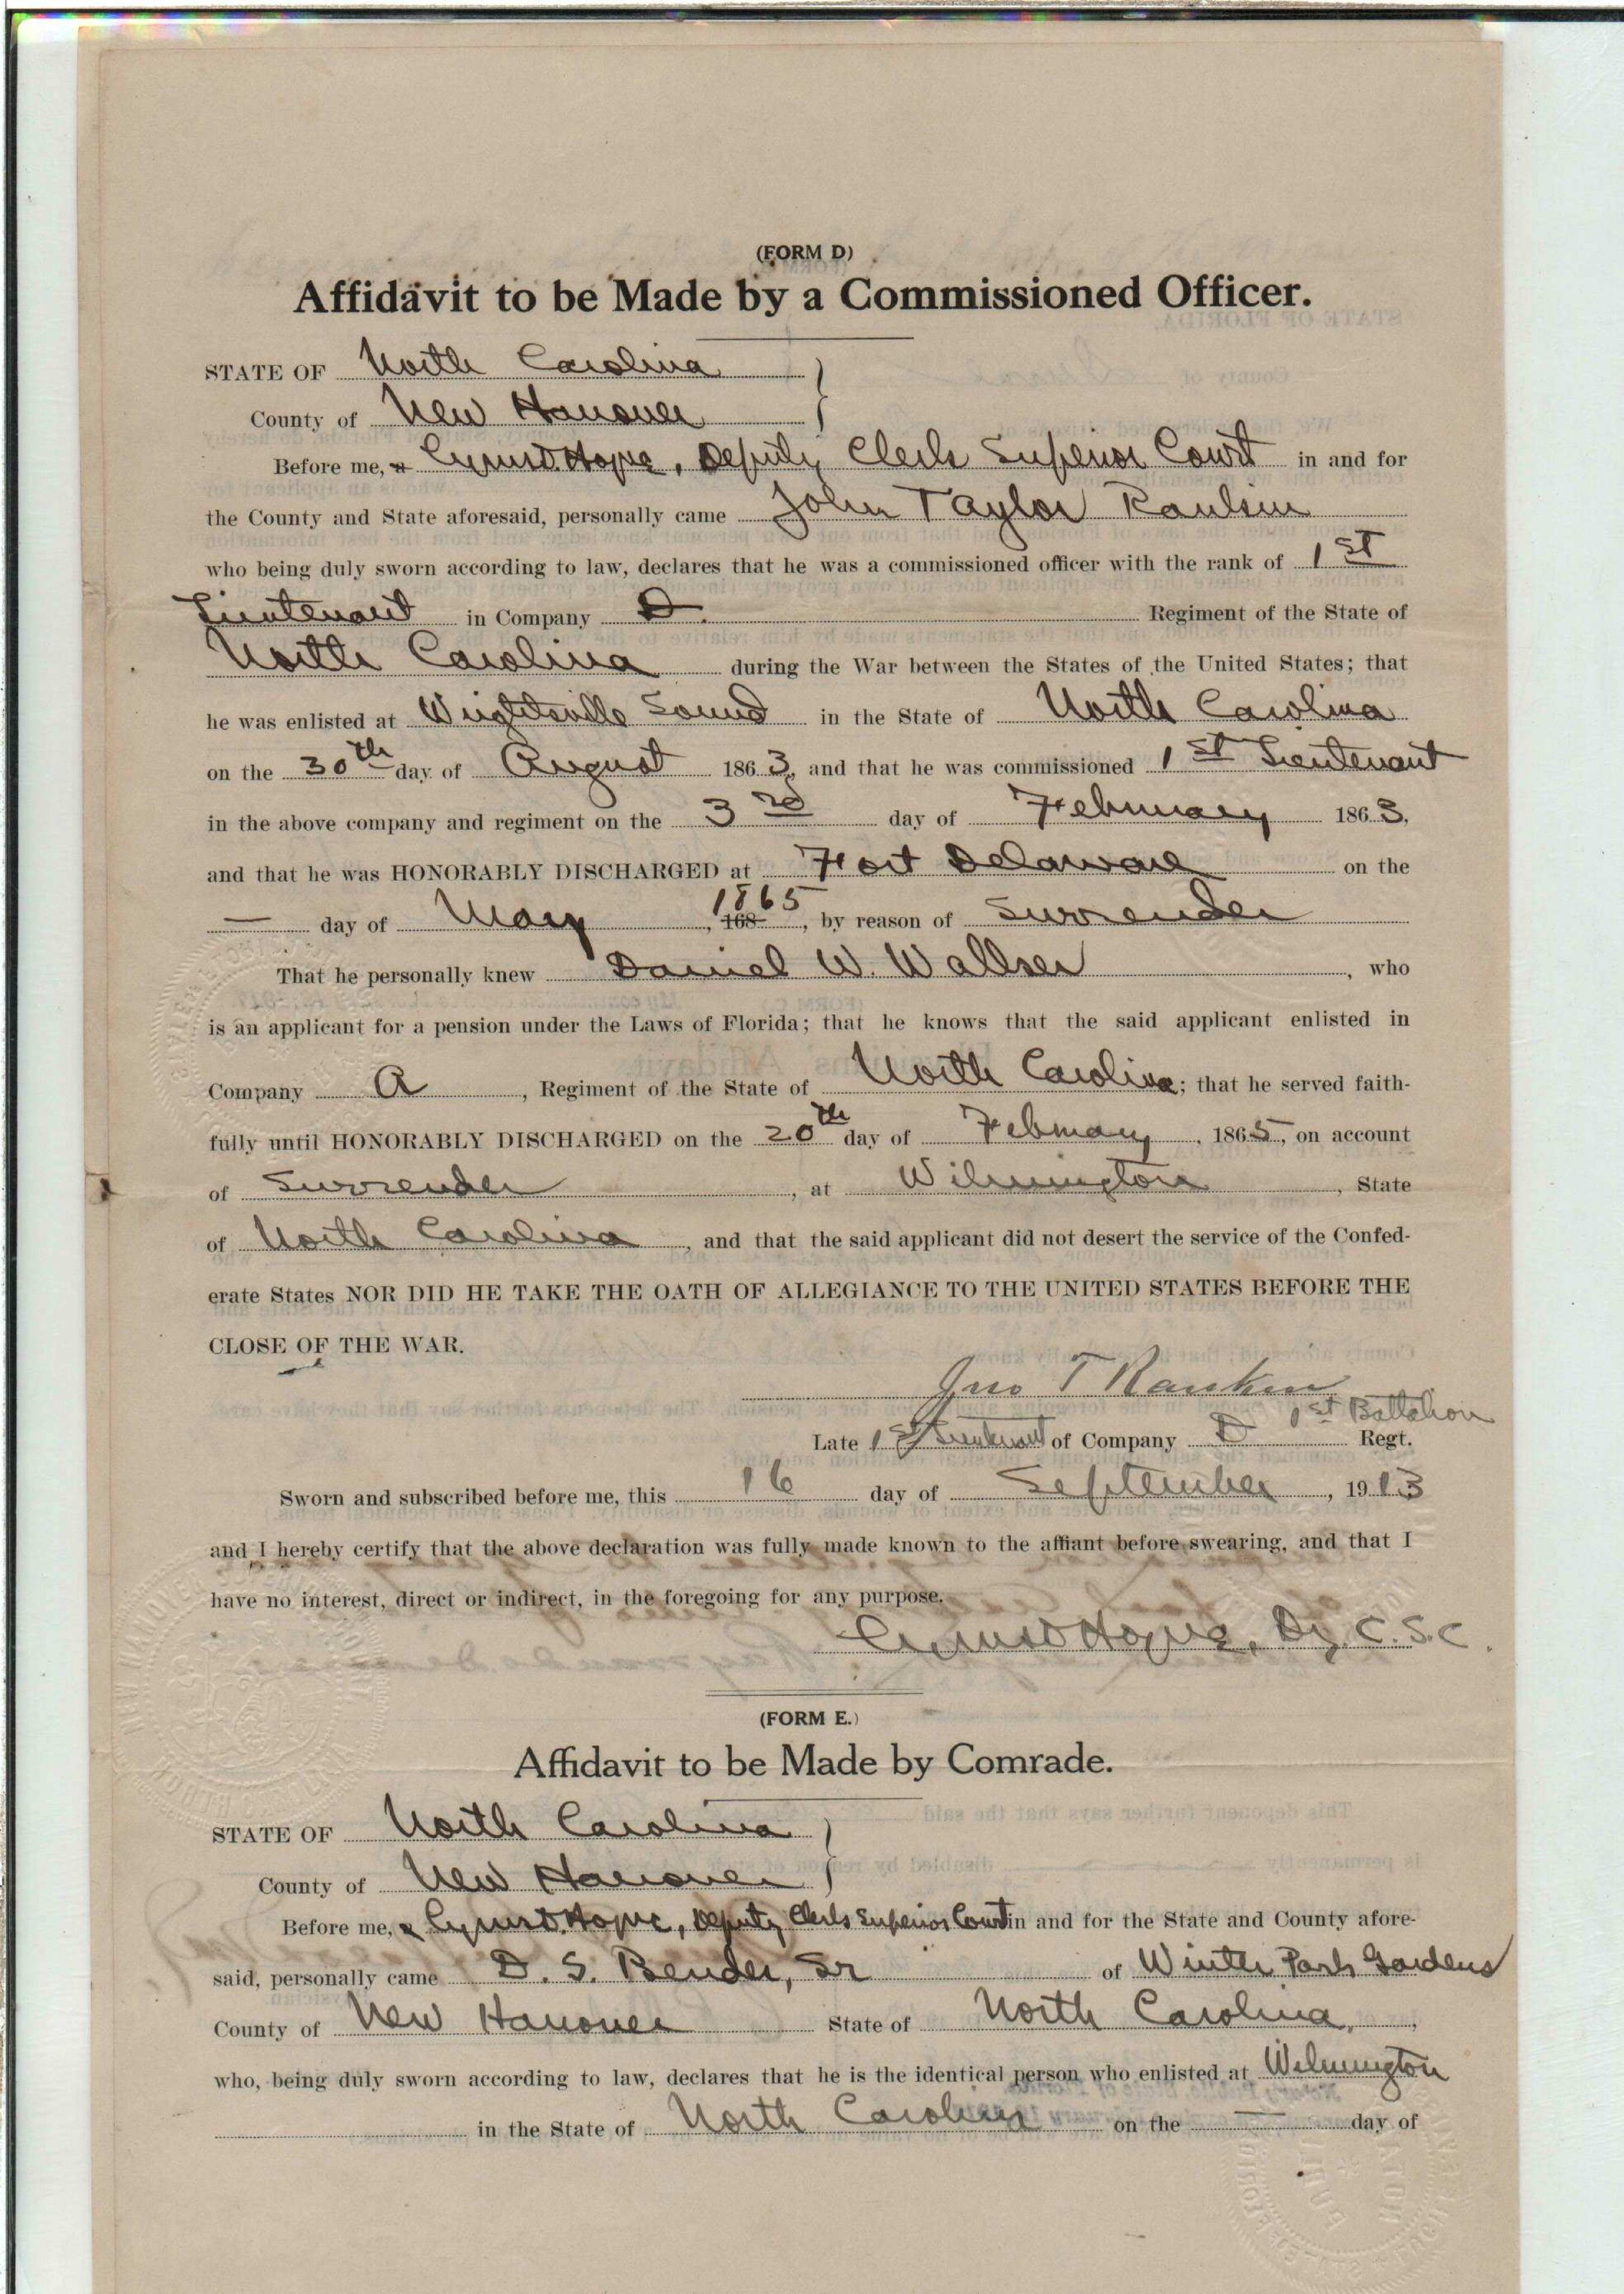 (FORM D)
Affidavit to be Made by a Commissioned Officer.
STATE OF North Carolina
County of New Hanover
Before me, Deputy Clerk Superior Court in and for
the County and State aforesaid, personally came John Taylor
who being duly sworn according to law, declares that he was a commissioned officer with the rank of 1st
Lieutenant in Company D. Regiment of the State of
North Carolina during the War between the States of the United States; that
he was enlisted at Wrightsville Sound in the State of North Carolina
on the 30th day of August 1863, and that he was commissioned 1st Lieutenant
in the above company and regiment on the 3rd day of February 1863,
and that he was HONORABLY DISCHARGED at Fort Delaware on the
— day of May, 1865, by reason of Surrender
That he personally knew Daniel W. Walker, who
is an applicant for a pension under the Laws of Florida; that he knows that the said applicant enlisted in
Company A, Regiment of the State of North Carolina; that he served faith-
fully until HONORABLY DISCHARGED on the 20th day of February, 1865, on account
of Surrender, at Wilmington, State
of North Carolina, and that the said applicant did not desert the service of the Confed-
erate States NOR DID HE TAKE THE OATH OF ALLEGIANCE TO THE UNITED STATES BEFORE THE
CLOSE OF THE WAR.
Jno T Rankin
Late 1st Lieutenant of Company D 1st Battalion Regt.
Sworn and subscribed before me, this 16 day of September, 1913
and I hereby certify that the above declaration was fully made known to the affiant before swearing, and that I
have no interest, direct or indirect, in the foregoing for any purpose.
Dy. C. S. C.
(FORM E.)
Affidavit to be Made by Comrade.
STATE OF North Carolina
County of New Hanover
Before me, Deputy Clerk Superior Court in and for the State and County afore-
said, personally came D. S. Bender, Sr of Winter Park Gardens
County of New Hanover State of North Carolina,
who, being duly sworn according to law, declares that he is the identical person who enlisted at Wilmington
in the State of North Carolina on the — day of